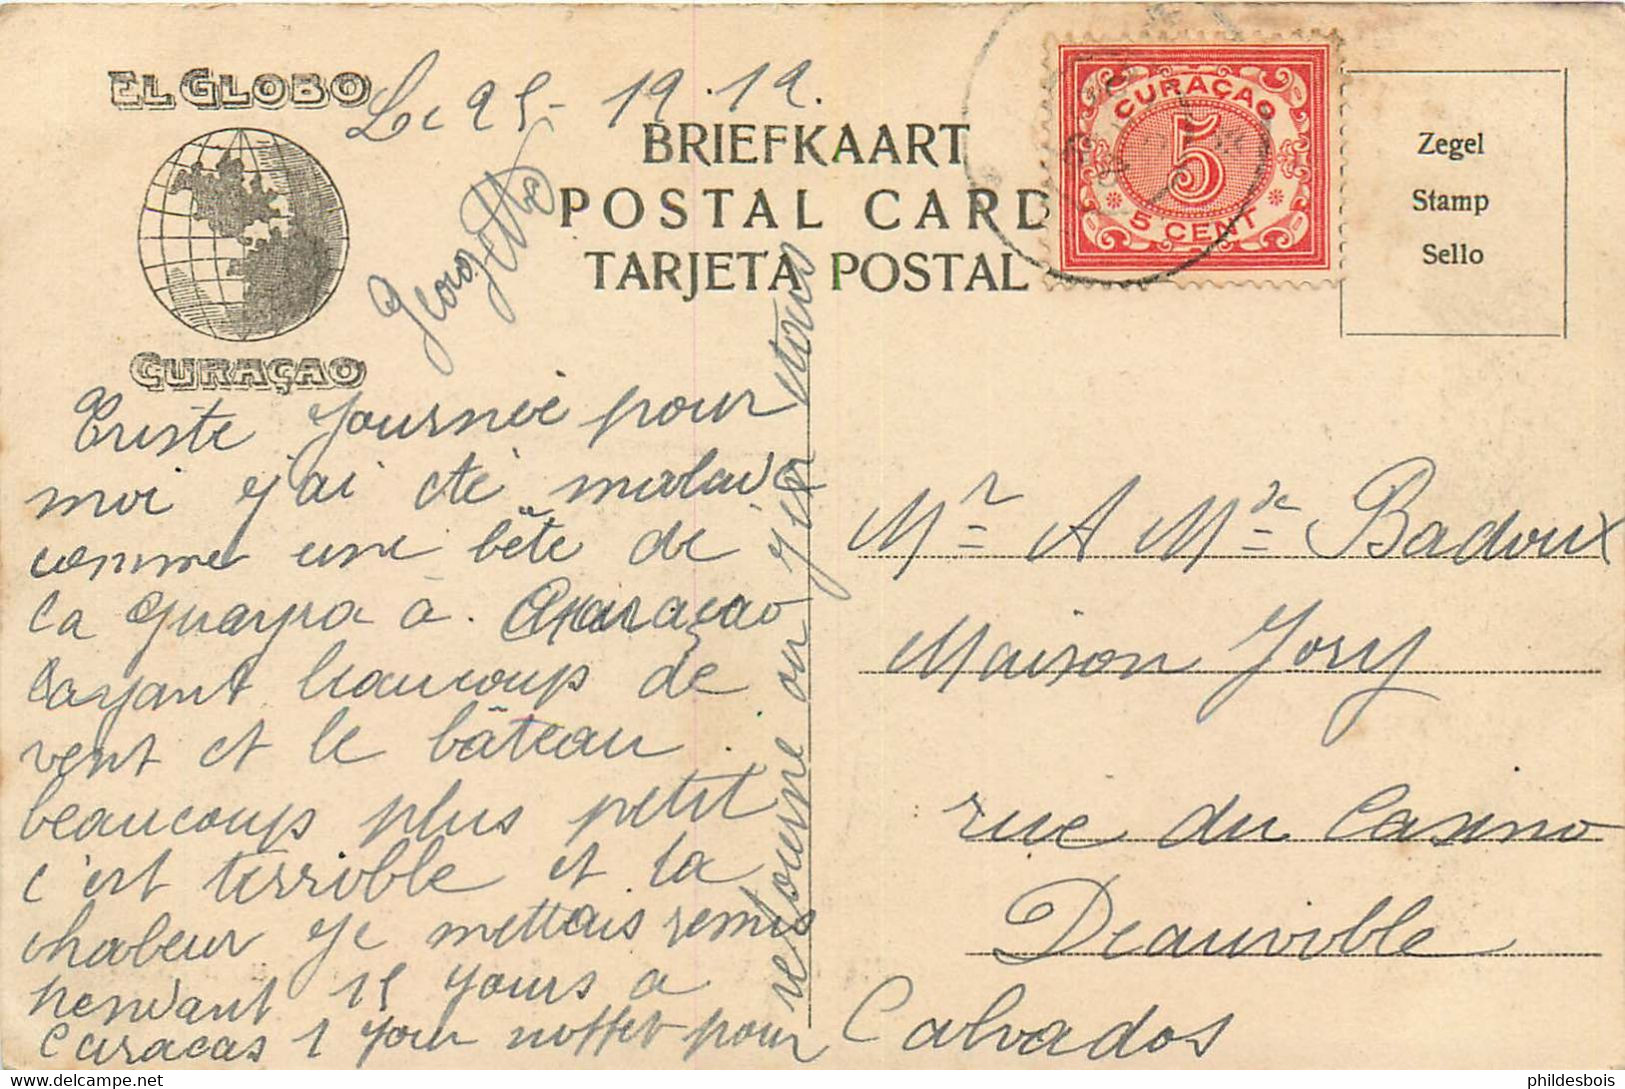 EL GLOBO
CURAÇAO
Le 25-19.19.
BRIEFKAART
POSTAL CARD
TARJETA POSTAL
CURAÇAO
5
5 CENT
Zegel
Stamp
Sello
Georgette
Triste journée pour
moi j'ai été malade
comme une bête de
La Guayra à Curaçao
ayant beaucoup de
vent et le bâteau
beaucoup plus petit
c'est terrible et la
chaleur je mettais remis
pendant 15 jours a
Caracas 1 jour pour
retourne ou j'en étais
Mr A Me Badoux
Maison Jory
rue du Casino
Deauville
Calvados
phildesbois